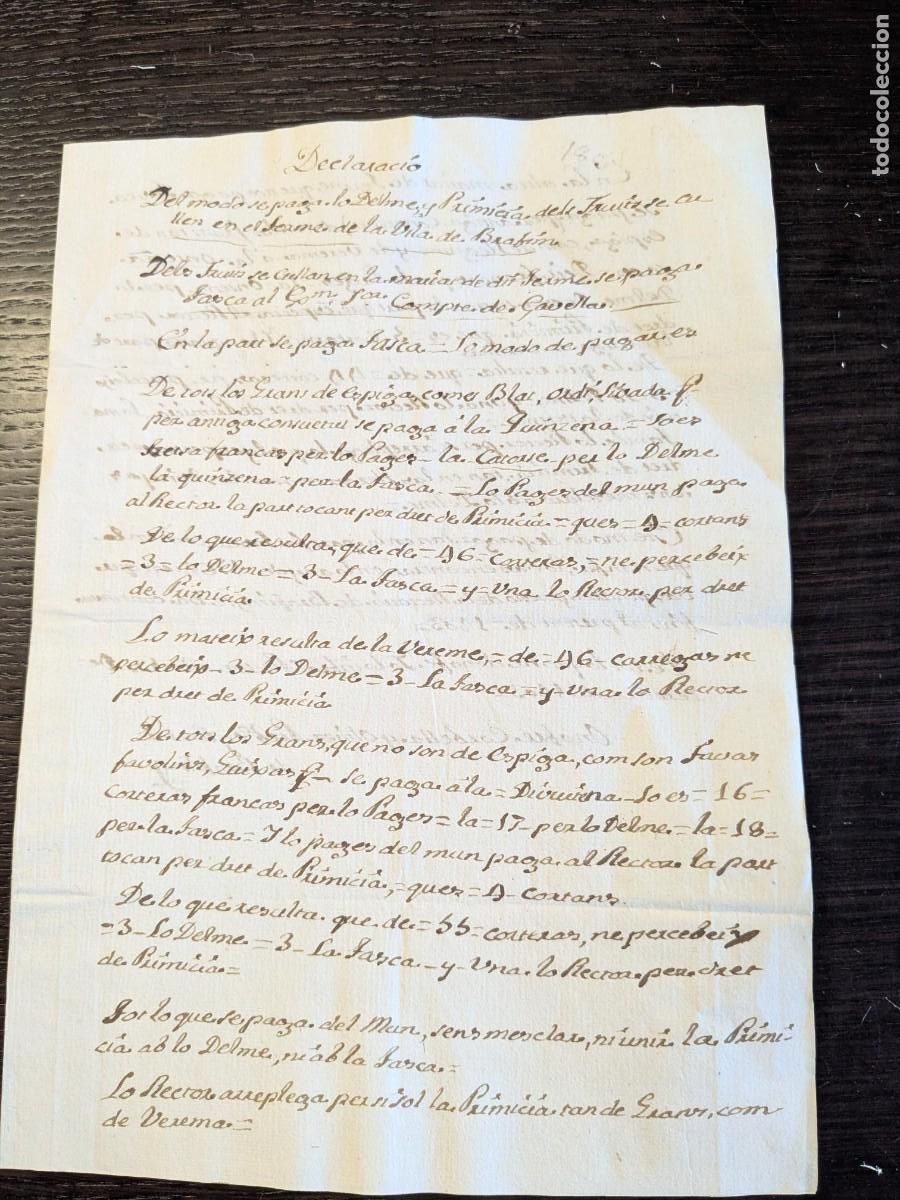 Declaració
Del modo se paga lo Delme, y Primicia dels Fruits se cu
llen en el Terme de la Vila de Brafim
Dels Fruits se cullan en la maitat de dit Terme se paga
Tasca al Comte de Gavella
En la part se paga Tasca = Lo modo de pagar es
De tots los Grans de Espiga, comes Blat, Ordi, Sivada &
per antiga consuetut se paga á la Quinzena = So es
francas per lo Pages = la Catorse per lo Delme
la quinzena = per la Tasca = Lo Pages del mun paga
al Rector la part tocant per dret de Primicia = ques = 4 = cortans
De lo que resulta, que de = 46 = Corteras, = ne percebeix
= 3 = lo Delme = 3 = La Tasca = y = Una lo Rector per dret
de Primicia
Lo mateix resulta de la Vereme, = de = 46 = carregas ne
percebeix = 3 = lo Delme = 3 = La Tasca = y = Una lo Rector
per dret de Primicia
De tots los Grans, que no son de Espiga, com son Favas
favolins, Guixas & = se paga á la = Divuitena = So es = 16 =
Corteras francas per lo Pages = la = 17 = per lo Delme = la = 18 =
per la Tasca = Y lo pages del mun paga al Rector la part
tocan per dret de Primicia, = ques = 4 = Cortans.
De lo que resulta que de = 55 = corteras, ne percebeix
= 3 = Lo Delme = 3 = La Tasca = y = Una lo Rector per dret
de Primicia =
Tot lo que se paga del Mun, sens mesclar, ni unir la Primi-
cia ab lo Delme, ni ab la Tasca =
Lo Rector arreplega per si sol la Primicia tan de Grans, com
de Verema =
todocoleccion